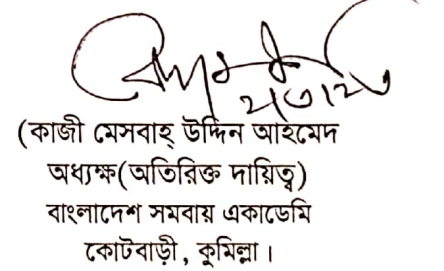 (কাজী মেসবাহ্ উদ্দিন আহমেদ
অধ্যক্ষ(অতিরিক্ত দায়িত্ব)
বাংলাদেশ সমবায় একাডেমি
কোটবাড়ী, কুমিল্লা।